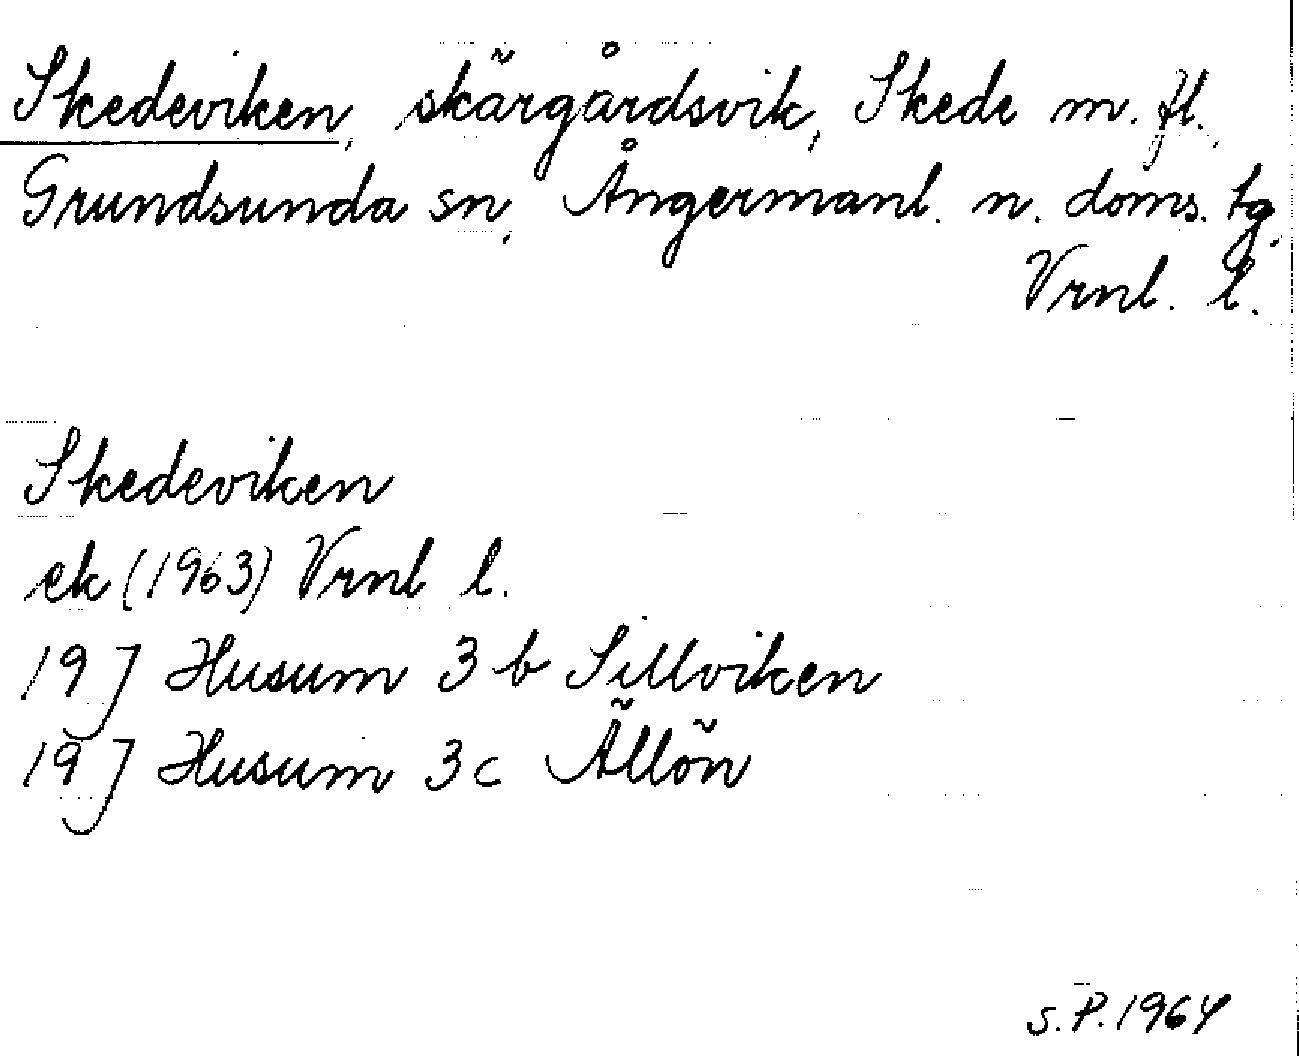 Skedeviken, skärgårdsvik, Skede m. fl.,
Grundsunda sn, Ångermanl. n. doms. tg,
Vrnl. l.
Skedeviken
ek (1963) Vrnl l.
19 J Husum 3 b Sillviken
19 J Husum 3 c Ällön
S.P. 1964